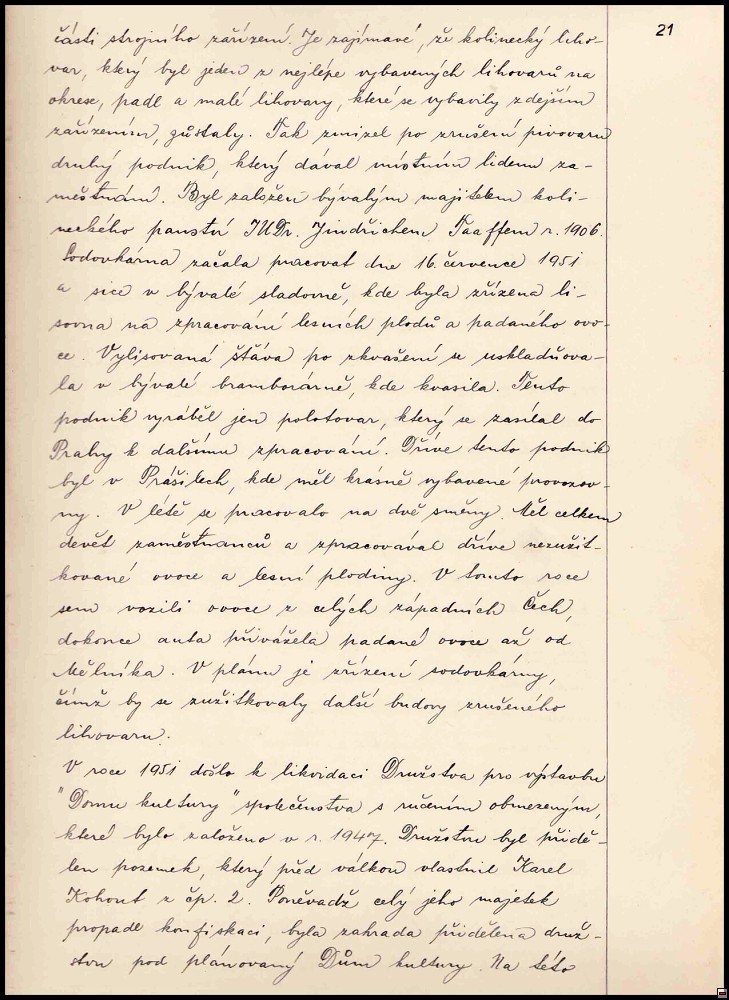 21
části strojního zařízení. Je zajímavé, že kolinecký liho-
var, který byl jeden z nejlépe vybavených lihovarů na
okrese, padl a malé lihovary, které se vybavily zdejším
zařízením, zůstaly. Tak zmizel po zrušení pivovaru
druhý podnik, který dával místním lidem za-
městnání. Byl založen bývalým majitelem koli-
neckého panství JUDr. Jindřichem Taaffem r. 1906.
Sodovkárna začala pracovat dne 16. července 1951
a sice v bývalé sladovně, kde byla zřízena li-
sovna na zpracování lesních plodů a padaného ovo-
ce. Vylisovaná šťáva po zkvašení se uskladňova-
la v bývalé bramborárně, kde kvasila. Tento
podnik vyráběl jen polotovar, který se zasílal do
Prahy k dalšímu zpracování. Dříve tento podnik
byl v Prášilech, kde měl krásně vybavené provozov-
ny. V létě se pracovalo na dvě směny. Měl celkem
devět zaměstnanců a zpracovával dříve nezužit-
kované ovoce a lesní plodiny. V tomto roce
sem vozili ovoce z celých západních Čech,
dokonce auta přivážela padané ovoce až od
Mělníka. V plánu je zřízení sodovkárny,
čímž by se zužitkovaly další budovy zrušeného
lihovaru.
V roce 1951 došlo k likvidaci Družstva pro výstavbu
"Domu kultury" společenstva s ručením obmezeným,
které bylo založeno v r. 1947. Družstvu byl přidě-
len pozemek, který před válkou vlastnil Karel
Kohout z čp. 2. Poněvadž celý jeho majetek
propadl konfiskaci, byla zahrada přidělena druž-
stvu pod plánovaný Dům kultury. Na této